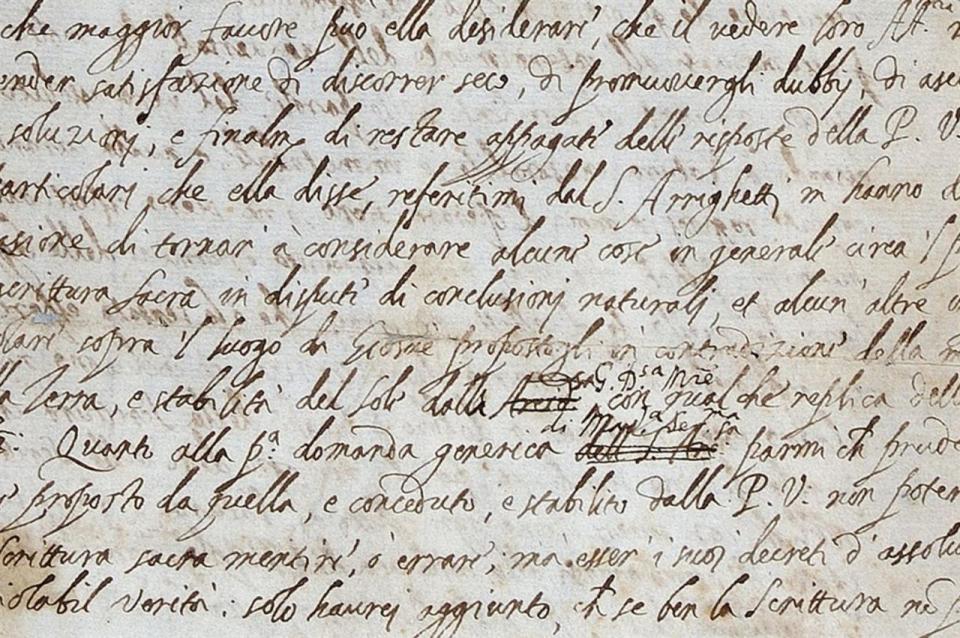 che maggior favore può ella desiderare, che il vedere loro Att.ze
ender satisfazione di discorrer seco, di promuovergli dubbij, di asc
soluzionj, e finalm. di restare appagate delle risposte della P. V
articolarj che ella disse, referitimi dal S. Arrighetti m hanno d
sione di tornar' à considerare alcune cose in generale circa 'l p
scrittura sacra in dispute di conclusionj naturalj, et alcun' altre
lare sopra 'l luogo di Giosuè propostogli in contradizione della m
sa G. D.sa M.re
la Terra, e stabilità del Sole dalla con qualche replica dell
di Mad.a Ser.ma
Quanto alla p.a domanda generica parmi ch prude
proposto da quella, e conceduto, e stabilito dalla P. V: non poter
Scrittura sacra mentire, ò errare, ma esser' i suoj decreti d' assolu
iolabil verità: solo haurej aggiunto, ch se ben la Scrittura nō p